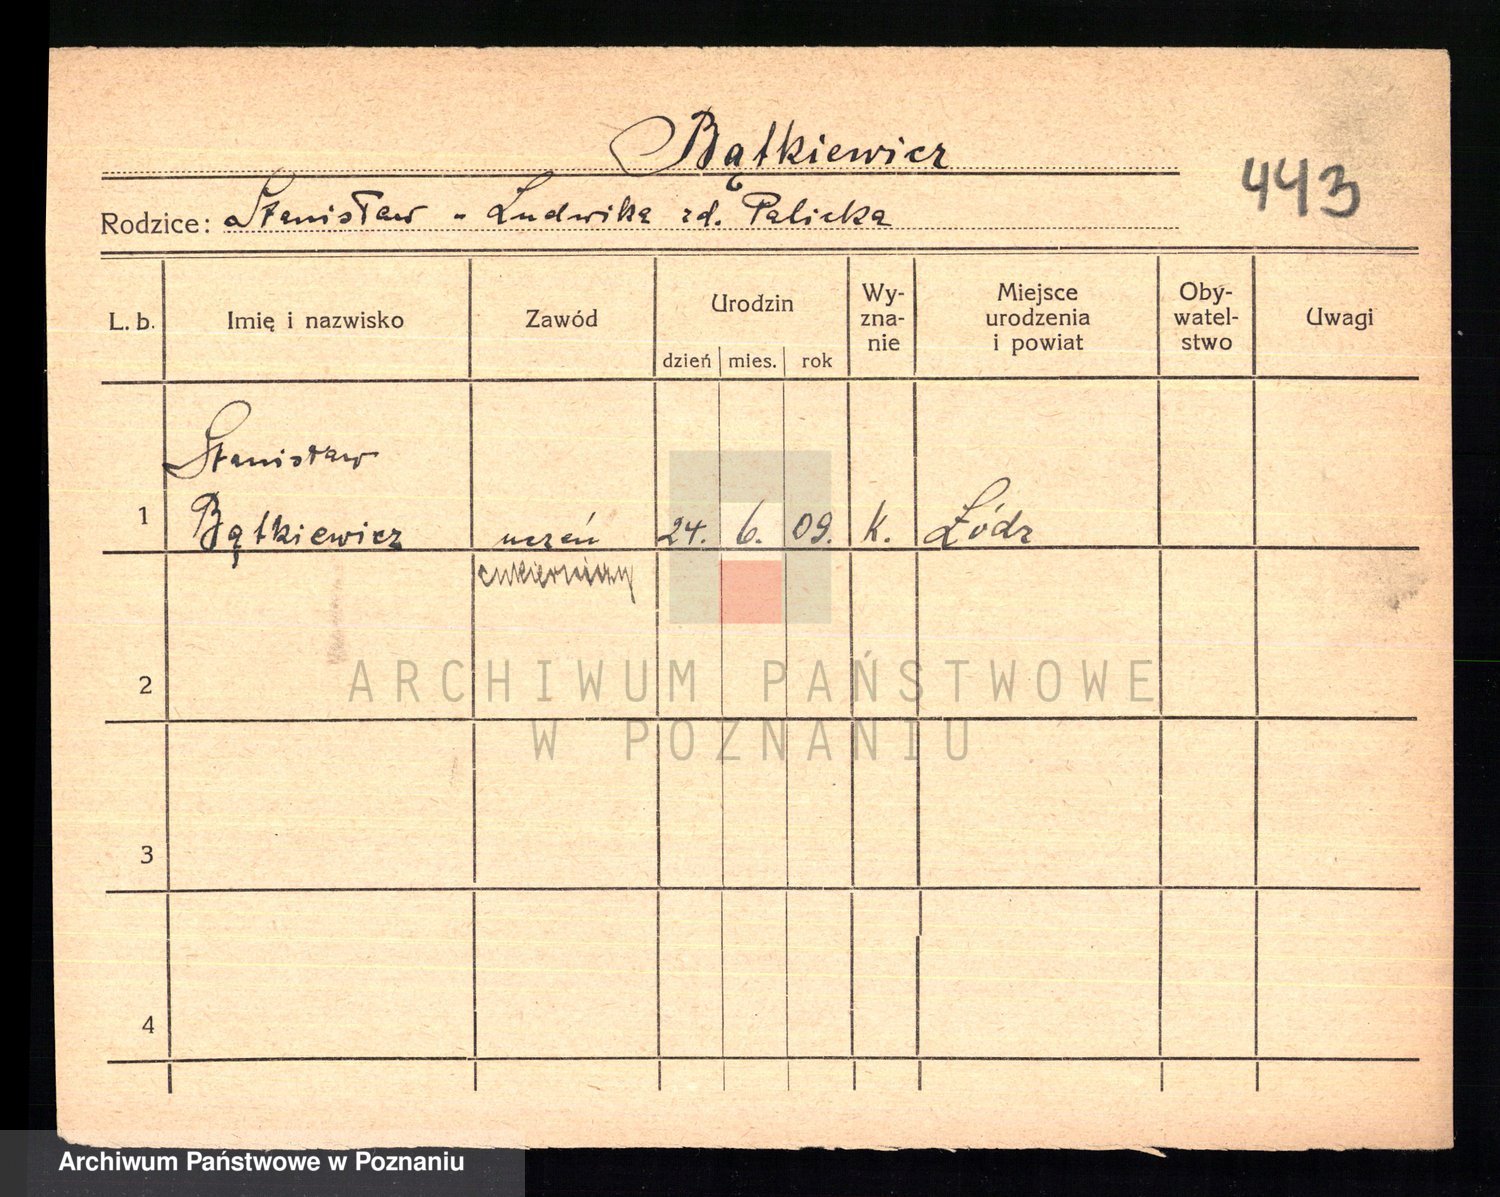 Bątkiewicz
443
Rodzice: Stanisław - Ludwika zd. Palicka
L. b. Imię i nazwisko Zawód Urodzin dzień mies. rok Wy-zna-nie Miejsce urodzenia i powiat Oby-watel-stwo Uwagi
Stanisław
1 Bątkiewicz uczeń 24. 6. 09. k. Łódz
cukierniczy
2
ARCHIWUM PAŃSTWOWE
W POZNANIU
3
4
Archiwum Państwowe w Poznaniu